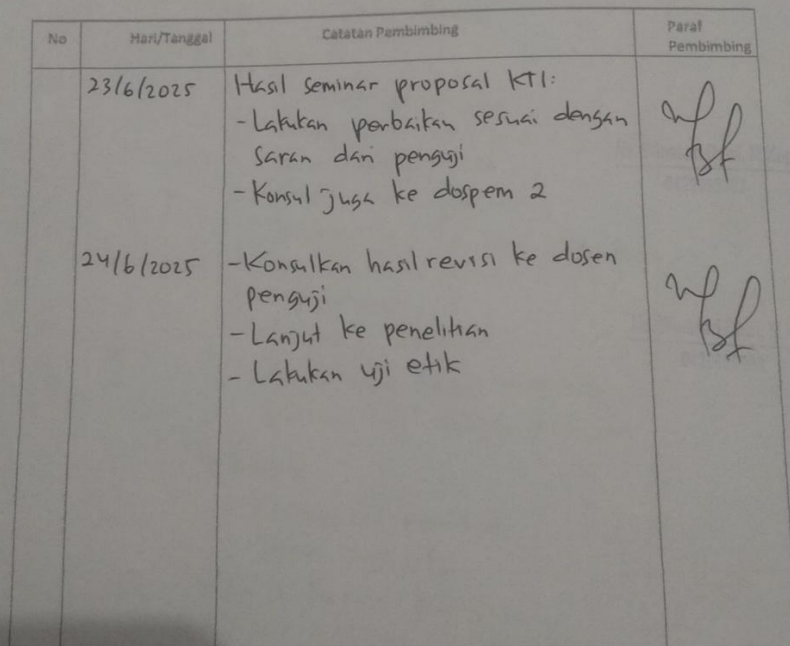 No Hari/Tanggal Catatan Pembimbing Paraf Pembimbing
23/6/2025 Hasil seminar proposal KTI:
- Lakukan perbaikan sesuai dengan
saran dari penguji
- Konsul juga ke dospem 2
24/6/2025 - Konsulkan hasil revisi ke dosen
penguji
- Lanjut ke penelitian
- Lakukan uji etik